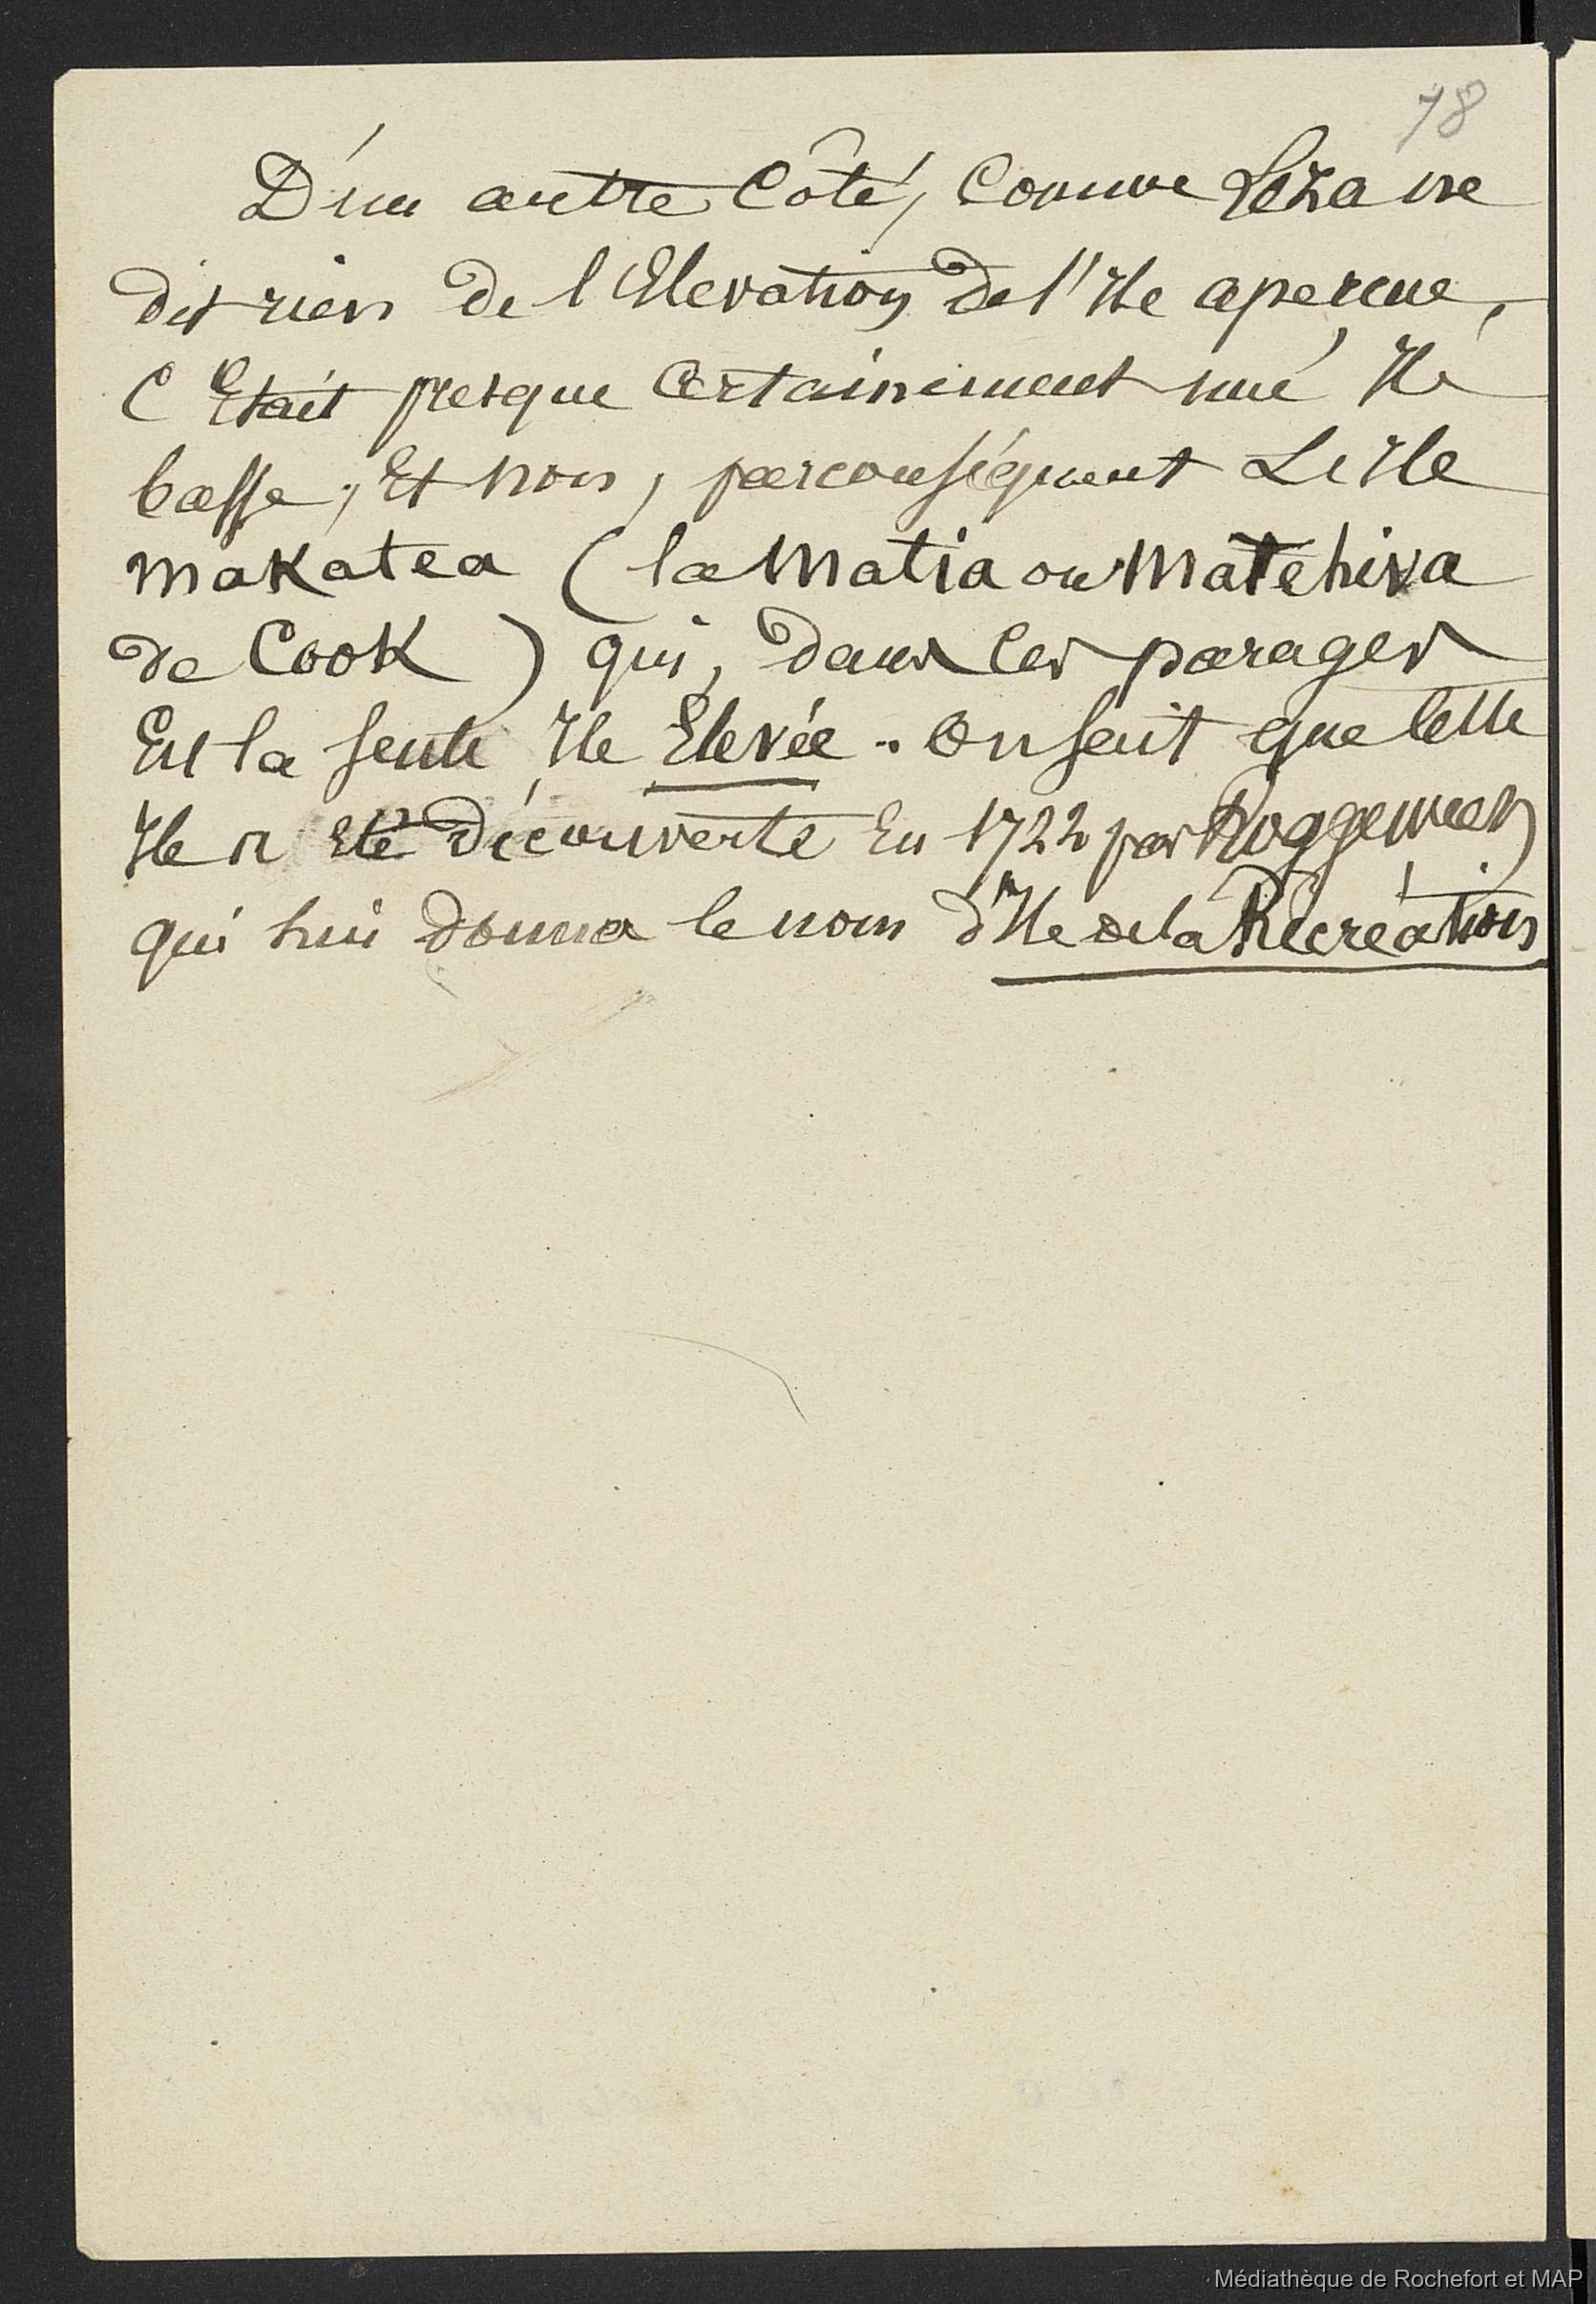 78
D'un autre Côté, Comme Leza ne
dit rien de l'Elevation de l'Ile apercue,
C'Etait presque Certainement une Ile
basse, Et non, parconséquent L'Ile
Makatea (la Matia ou Matehiva
de Cook) qui, dans ces parages
Est la seule Ile Elevée. On sait que cette
Ile a été découverte En 1722 par Roggeween
qui lui donna le nom d'Ile de la Récréation
Médiathèque de Rochefort et MAP